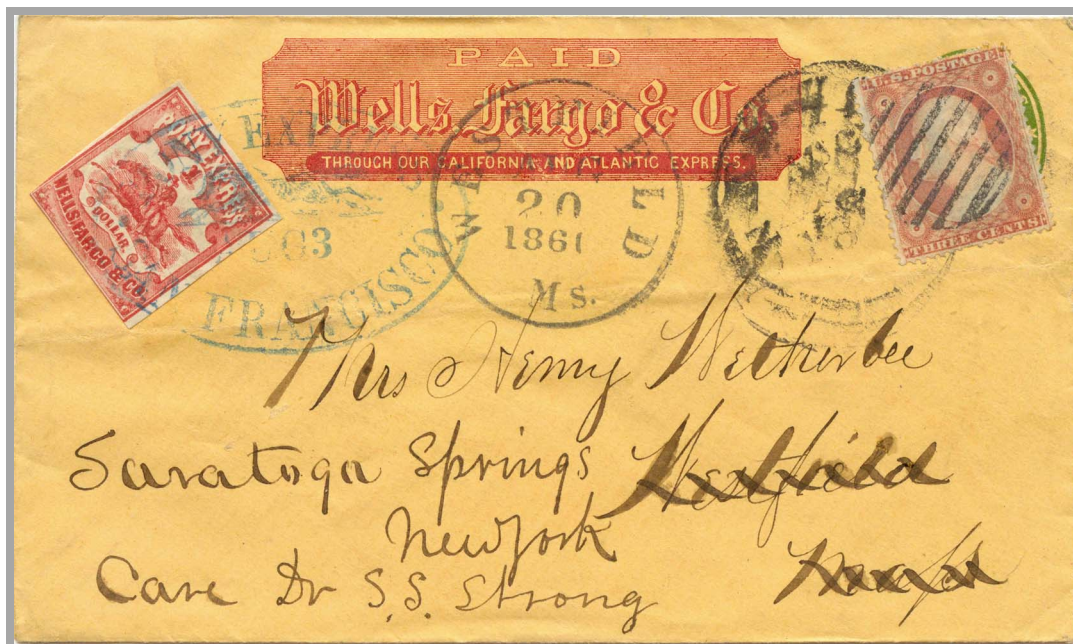 PAID
Wells Fargo & Co.
THROUGH OUR CALIFORNIA AND ATLANTIC EXPRESS.
PONY EXPRESS
1
DOLLAR
WELLS FARGO & CO.
FRANCISCO
WESTFIELD
20
1861
Ms.
U.S. POSTAGE
THREE CENTS
Mrs Henry Wetherbee
Saratoga Springs Westfield
New York
Mass
Care Dr S.S. Strong